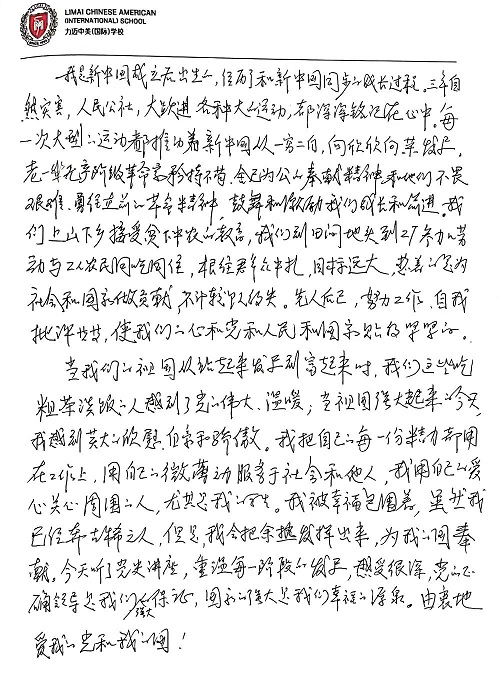 LIMAI CHINESE AMERICAN
(INTERNATIONAL) SCHOOL
力迈中美(国际)学校
我是新中国成立后出生的人，经历了和新中国同步的成长过程，三年自
然灾害，人民公社，大跃进各种大的运动，都深深铭记在心中。每
一次大型的运动都推动着新中国从一穷二白，向欣欣向荣发展，
老一辈无产阶级革命家矜持不苟、全心为公的奉献精神和他们不畏
艰难、勇往直前的革命精神，鼓舞和激励我们成长和前进。我
们上山下乡接受贫下中农的教育，我们到田间地头到工厂参加劳
动与工人农民同吃同住，根往群众中扎，目标远大，想着的是为
社会和国家做贡献，不计较个人得失。先人后己，努力工作，自我
批评，使我们的心和党和人民和国家贴得紧紧的。
当我们的祖国从站起来发展到富起来时，我们这些吃
粗茶淡饭的人感到了党的伟大、温暖；当祖国强大起来的今天，
我感到莫大的欣慰、自豪和骄傲。我把自己的每一份精力都用
在工作上，用自己的微薄力服务于社会和他人，我用自己的爱
心关心周围的人，尤其是我的学生。我被幸福包围着，虽然我
已经年古稀之人，但是我会把余热发挥出来，为我的国奉
献。今天听了党史讲座，重温每一阶段的发展，感受很深，党的正
确领导是我们强大保证，国家的强大是我们幸福的源泉。由衷地
爱我的党和我的国！